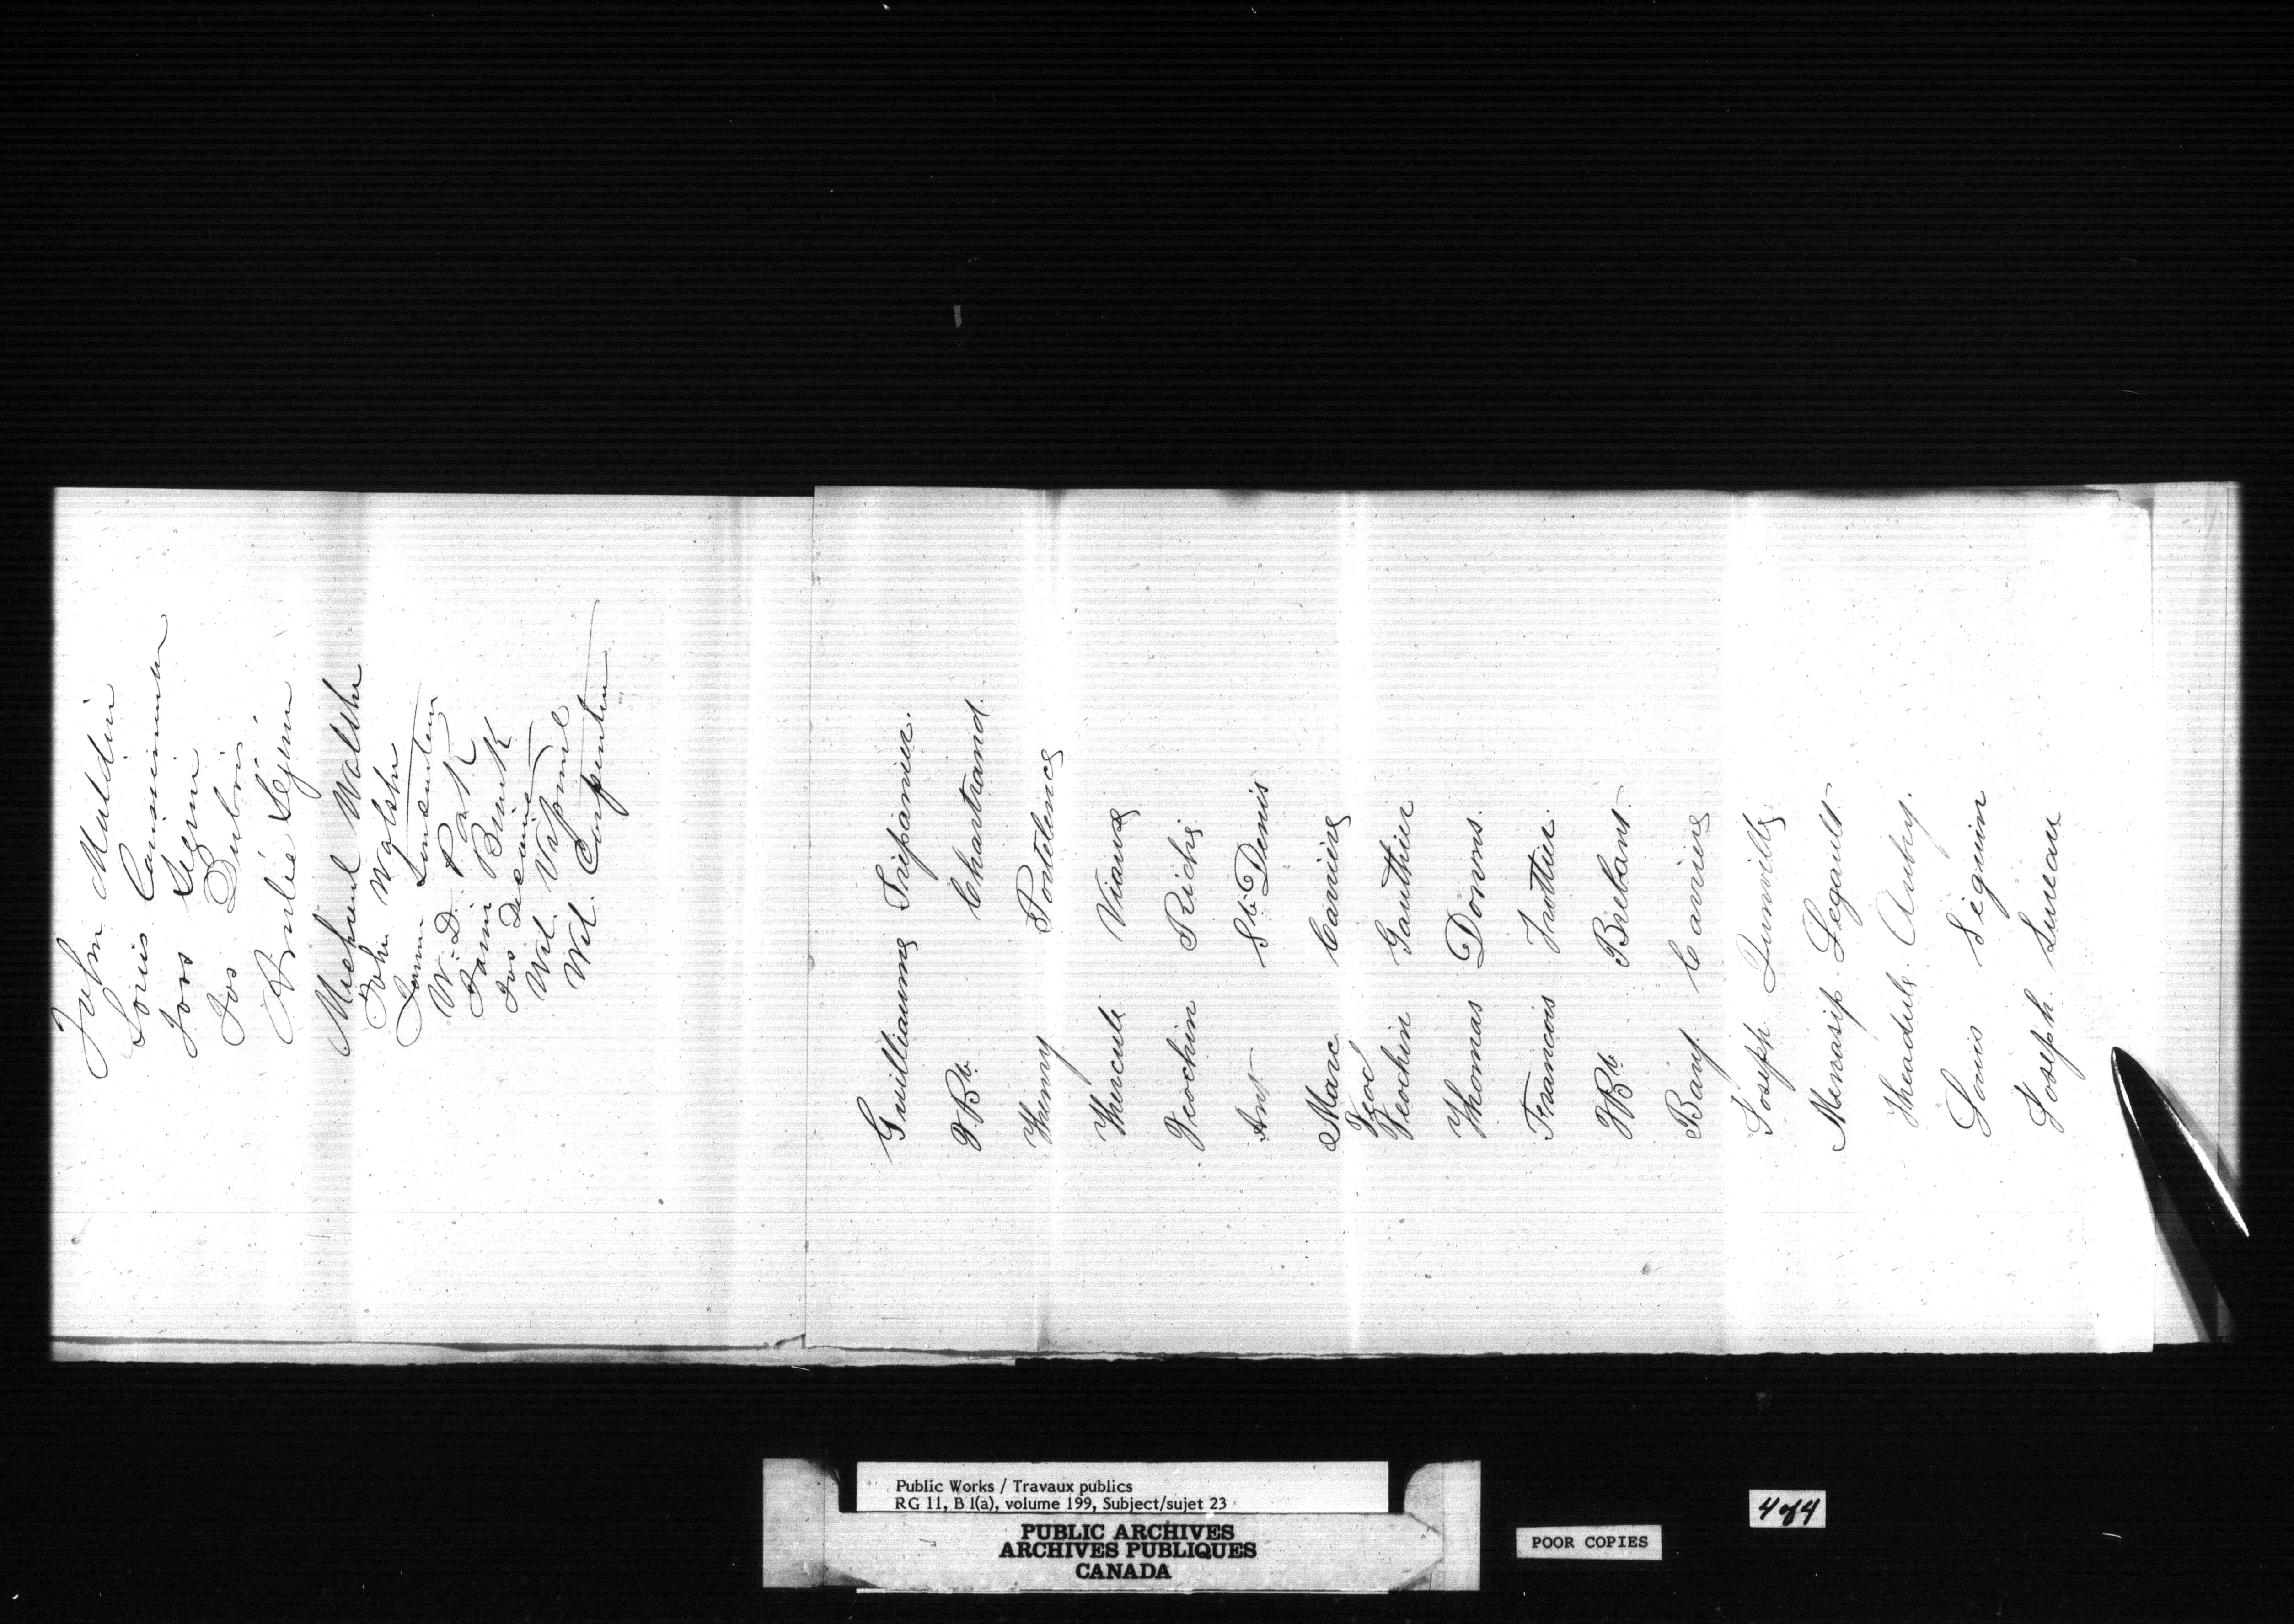 John Maldin
Louis
Jos Segin
Jos Dubois
Seguin
Michael Walsh
John Walsh
W. D. Park
Jos
Wil.
Wil. Carpenter
Guilliaume Tripanier.
JBte. Chartrand.
Henry Portelence
Hercule Viau
Jeochin Richi
Ant St. Denis
Marc Carriere
Jeod
Jeochin Gauthier
Thomas Downs.
Francois Trottier.
JBte. Brebant.
Bany. Carriere
Joseph Junville
Menasip Legault
Theadule. Aubry.
Louis Seguin
Joseph Lureau
Public Works / Travaux publics
RG 11, B 1(a), volume 199, Subject/sujet 23
PUBLIC ARCHIVES
ARCHIVES PUBLIQUES
CANADA
POOR COPIES
4 of 4